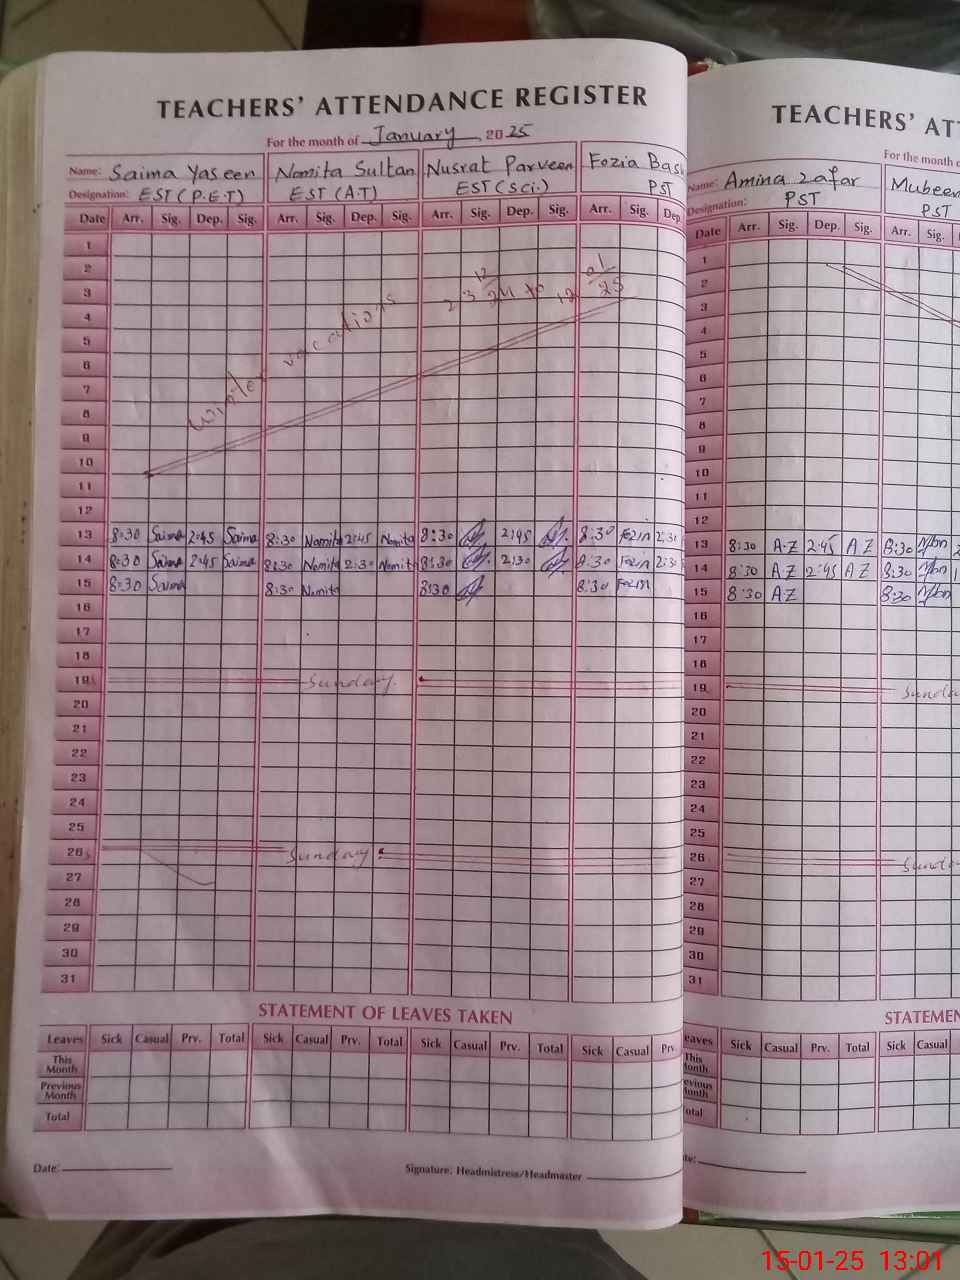 TEACHERS' ATTENDANCE REGISTER
For the month of January 2025
Name: Saima Yaseen Nomita Sultan Nusrat Parveen Fozia Bas
Designation: EST (P.E.T) EST (A.T) EST (Sci.) PST
Date Arr. Sig. Dep. Sig. Arr. Sig. Dep. Sig. Arr. Sig. Dep. Sig. Arr. Sig. Dep.
1
2
3
4
5
6
7
8
9
10
11
12
winter vacations 23 12/24 to 12 01/25
13 8:30 Saima 2:45 Saima 8:30 Nomita 2:45 Nomita 8:30 2:45 8:30 Fozia 2:30
14 8:30 Saima 2:45 Saima 8:30 Nomita 2:30 Nomita 8:30 2:30 8:30 Fozia 2:30
15 8:30 Saima 8:30 Nomita 8:30 8:30 Fozia
16
17
18
19 Sunday.
20
21
22
23
24
25
26 Sunday
27
28
29
30
31
STATEMENT OF LEAVES TAKEN
Leaves Sick Casual Prv. Total Sick Casual Prv. Total Sick Casual Prv. Total Sick Casual Prv.
This Month
Previous Month
Total
Date: Signature: Headmistress/Headmaster
TEACHERS' AT
For the month o
Name: Amina Zafar Mubeen
Designation: PST PST
Date Arr. Sig. Dep. Sig. Arr. Sig.
1
2
3
4
5
6
7
8
9
10
11
12
13 8:30 A.Z 2:45 A Z 8:30
14 8:30 A Z 2:45 A Z 8:30
15 8:30 A.Z 8:30
16
17
18
19 Sunda
20
21
22
23
24
25
26 Sunda
27
28
29
30
31
STATEMEN
eaves Sick Casual Prv. Total Sick Casual
This
onth
evious
onth
otal
te:
15-01-25 13:01